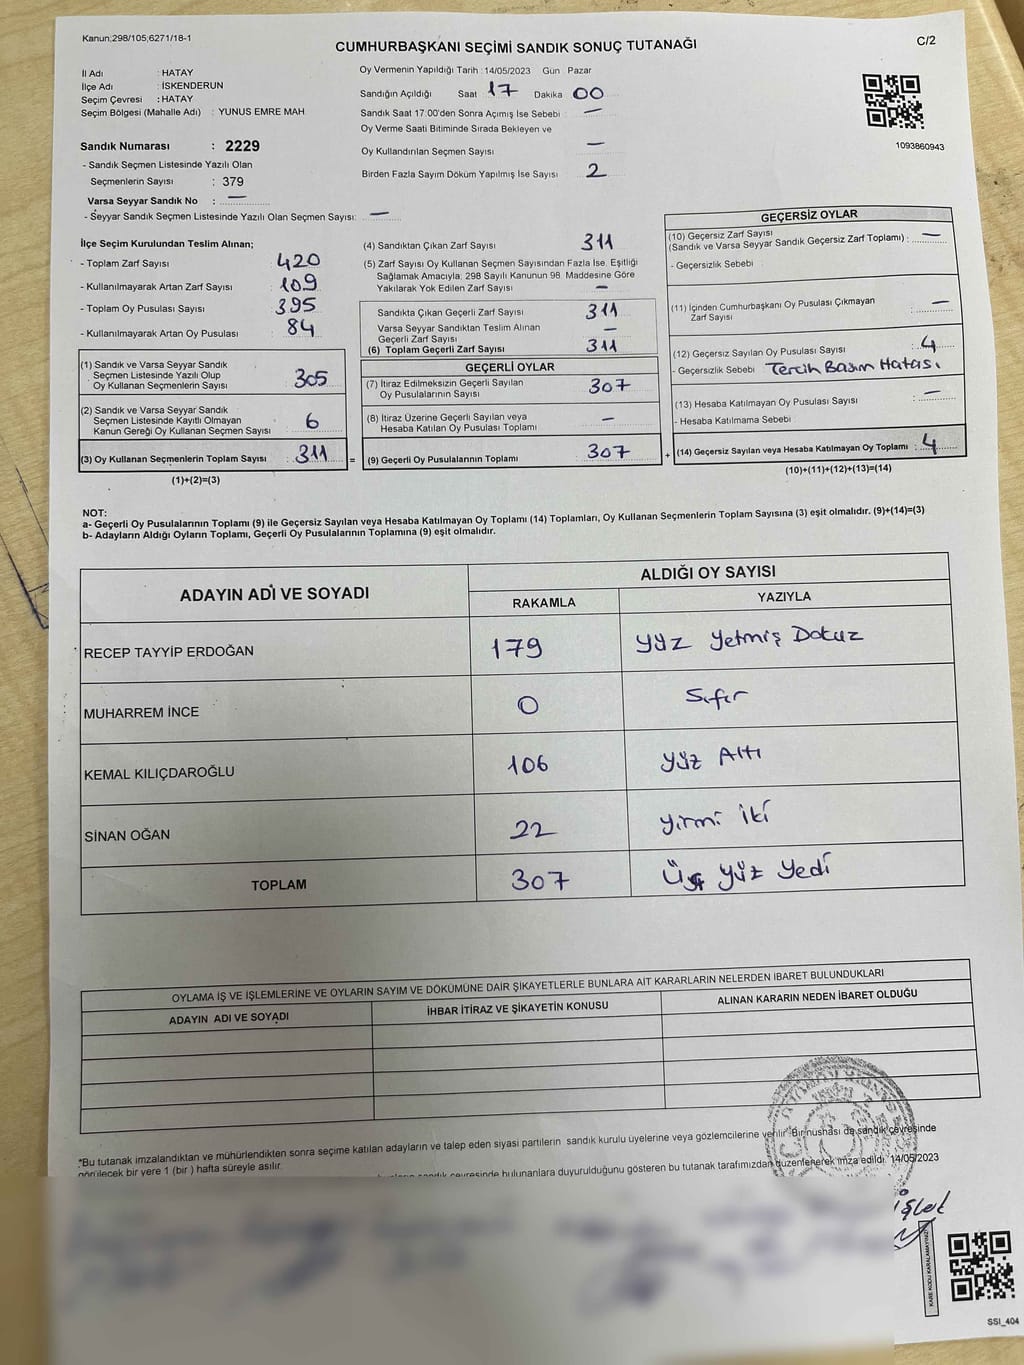 Kanun;298/105;6271/18-1
C/2
CUMHURBAŞKANI SEÇİMİ SANDIK SONUÇ TUTANAĞI
İl Adı : HATAY
İlçe Adı : İSKENDERUN
Seçim Çevresi : HATAY
Seçim Bölgesi (Mahalle Adi) : YUNUS EMRE MAH
Sandık Numarası : 2229
- Sandık Seçmen Listesinde Yazılı Olan
Seçmenlerin Sayısı : 379
Varsa Seyyar Sandık No : —
- Seyyar Sandık Seçmen Listesinde Yazılı Olan Seçmen Sayısı: —
Oy Vermenin Yapıldığı Tarih : 14/05/2023 Gün Pazar
Sandığın Açıldığı Saat 17 Dakika 00
Sandık Saat 17.00'den Sonra Açımış İse Sebebi : —
Oy Verme Saati Bitiminde Sırada Bekleyen ve
Oy Kullandırılan Seçmen Sayısı —
Birden Fazla Sayım Döküm Yapılmış İse Sayısı 2
1093860943
İlçe Seçim Kurulundan Teslim Alınan;
- Toplam Zarf Sayısı 420
- Kullanılmayarak Artan Zarf Sayısı : 109
- Toplam Oy Pusulası Sayısı : 395
- Kullanılmayarak Artan Oy Pusulası : 84
(1) Sandık ve Varsa Seyyar Sandık
Seçmen Listesinde Yazılı Olup
Oy Kullanan Seçmenlerin Sayısı 305
(2) Sandık ve Varsa Seyyar Sandık
Seçmen Listesinde Kayıtlı Olmayan
Kanun Gereği Oy Kullanan Seçmen Sayısı 6
(3) Oy Kullanan Seçmenlerin Toplam Sayısı : 311 =
(1)+(2)=(3)
(4) Sandıktan Çıkan Zarf Sayısı 311
(5) Zarf Sayısı Oy Kullanan Seçmen Sayısından Fazla İse, Eşitliği
Sağlamak Amacıyla; 298 Sayılı Kanunun 98. Maddesine Göre
Yakılarak Yok Edilen Zarf Sayısı —
Sandıkta Çıkan Geçerli Zarf Sayısı : 311
Varsa Seyyar Sandıktan Teslim Alınan
Geçerli Zarf Sayısı —
(6) Toplam Geçerli Zarf Sayısı 311
GEÇERLİ OYLAR
(7) İtiraz Edilmeksizin Geçerli Sayılan
Oy Pusulalarının Sayısı 307
(8) İtiraz Üzerine Geçerli Sayılan veya
Hesaba Katılan Oy Pusulası Toplamı —
(9) Geçerli Oy Pusulalarının Toplamı 307 +
GEÇERSİZ OYLAR
(10) Geçersiz Zarf Sayısı
(Sandık ve Varsa Seyyar Sandık Geçersiz Zarf Toplamı) : —
- Geçersizlik Sebebi :
(11) İçinden Cumhurbaşkanı Oy Pusulası Çıkmayan
Zarf Sayısı : —
(12) Geçersiz Sayılan Oy Pusulası Sayısı : 4
- Geçersizlik Sebebi Tercih Basım Hatası
(13) Hesaba Katılmayan Oy Pusulası Sayısı : —
- Hesaba Katılmama Sebebi :
(14) Geçersiz Sayılan veya Hesaba Katılmayan Oy Toplamı : 4
(10)+(11)+(12)+(13)=(14)
NOT:
a- Geçerli Oy Pusulalarının Toplamı (9) ile Geçersiz Sayılan veya Hesaba Katılmayan Oy Toplamı (14) Toplamları, Oy Kullanan Seçmenlerin Toplam Sayısına (3) eşit olmalıdır. (9)+(14)=(3)
b- Adayların Aldığı Oyların Toplamı, Geçerli Oy Pusulalarının Toplamına (9) eşit olmalıdır.
ADAYIN ADI VE SOYADI
ALDIĞI OY SAYISI
RAKAMLA YAZIYLA
RECEP TAYYİP ERDOĞAN 179 Yüz Yetmiş Dokuz
MUHARREM İNCE 0 Sıfır
KEMAL KILIÇDAROĞLU 106 Yüz Altı
SİNAN OĞAN 22 Yirmi İki
TOPLAM 307 Üç Yüz Yedi
OYLAMA İŞ VE İŞLEMLERİNE VE OYLARIN SAYIM VE DÖKÜMÜNE DAİR ŞİKAYETLERLE BUNLARA AİT KARARLARIN NELERDEN İBARET BULUNDUKLARI
ADAYIN ADI VE SOYADI İHBAR İTİRAZ VE ŞİKAYETİN KONUSU ALINAN KARARIN NEDEN İBARET OLDUĞU
*Bu tutanak imzalandıktan ve mühürlendikten sonra seçime katılan adayların ve talep eden siyasi partilerin sandık kurulu üyelerine veya gözlemcilerine verilir. Bir nushası da sandık çevresinde
görülecek bir yere 1 (bir ) hafta süreyle asılır.
sandık çevresinde bulunanlara duyurulduğunu gösteren bu tutanak tarafımızdan düzenlenerek imza edildi. 14/05/2023
KARE KODU KARALAMAYINIZ
SSI_404